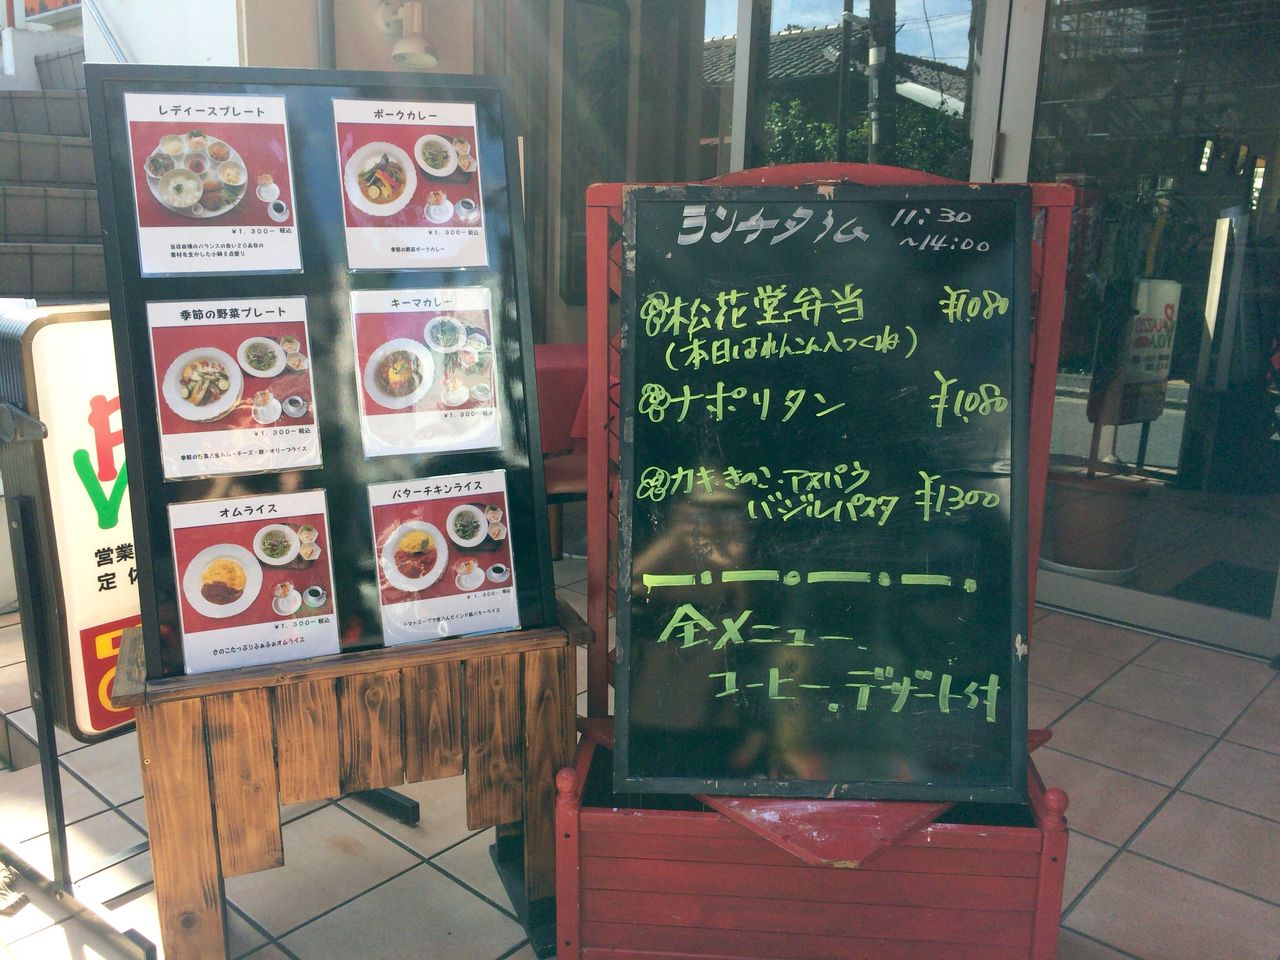 レディースプレート
¥1,300ー税込
当店自慢のバランスの良い20品目の
素材を生かした小鉢8点盛り
ポークカレー
¥1,300ー税込
季節の野菜ポークカレー
季節の野菜プレート
¥1,300ー税込
季節の野菜と生ハム・チーズ・卵・オリーブライス
キーマカレー
¥1,300ー税込
オムライス
¥1,300ー税込
きのこたっぷりふぁふぁオムライス
バターチキンライス
¥1,300ー税込
トマトスープで煮込んだインド風バターライス
営業
定休
ランチタイム 11:30
~14:00
松花堂弁当 ¥1.080
(本日はれんこん入つくね)
ナポリタン ¥1,080
カキ.きのこ.アスパラ
バジルパスタ ¥1.300
全メニュー
コーヒー.デザート付